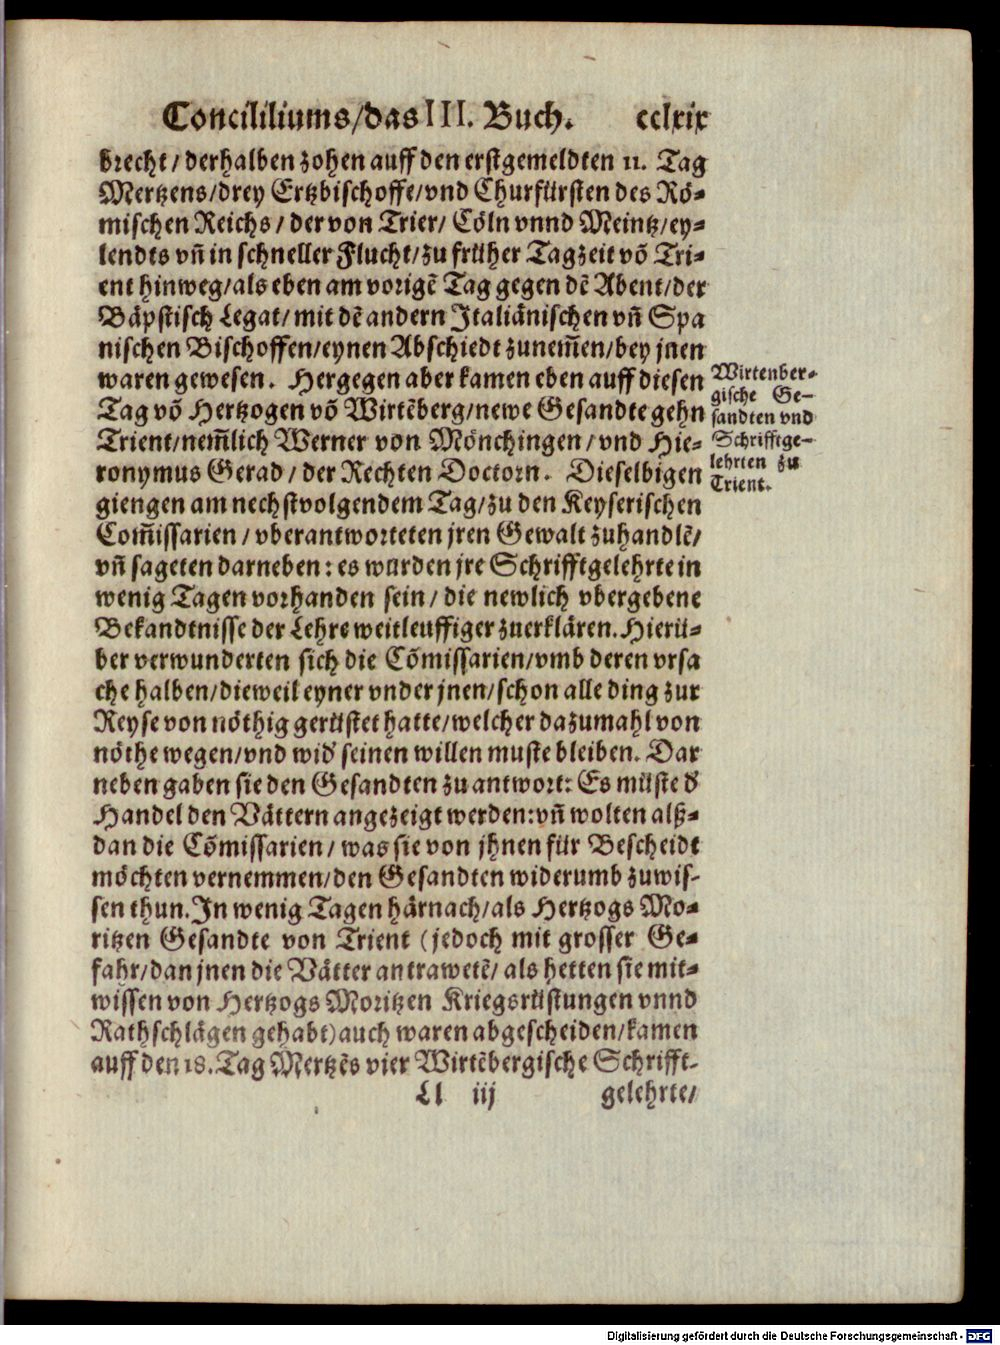 Concililiums/das III. Buch. cclxix
brecht/ derhalben zohen auff den erstgemeldten 11. Tag
Mertzens/drey Ertzbischoffe/vnd Churfürsten des Rö-
mischen Reichs/ der von Trier/ Cöln vnnd Meintz/ey-
lendts vñ in schneller Flucht/zu früher Tagzeit võ Tri-
ent hinweg/als eben am vorigẽ Tag gegen dẽ Abent/der
Bäpstisch Legat/ mit dẽ andern Italiänischen vñ Spa
nischen Bischoffen/eynen Abschiedt zunem̃en/bey jnen
waren gewesen. Hergegen aber kamen eben auff diesen
Tag võ Hertzogen võ Wirtẽberg/newe Gesandte gehn
Trient/nem̃lich Werner von Mönchingen/vnd Hie-
ronymus Gerad/ der Rechten Doctorn. Dieselbigen
giengen am nechstvolgendem Tag/zu den Keyserischen
Com̃issarien/ vberantworteten jren Gewalt zuhandlẽ/
vñ sageten darneben: es würden jre Schrifftgelehrte in
wenig Tagen vorhanden sein/ die newlich vbergebene
Bekandtnisse der Lehre weitleuffiger zuerklären. Hierü-
ber verwunderten sich die Cõmissarien/vmb deren vrsa
che halben/dieweil eyner vnder jnen/schon alle ding zur
Reyse von nöthig gerüstet hatte/welcher dazumahl von
nöthe wegen/vnd wid' seinen willen muste bleiben. Dar
neben gaben sie den Gesandten zu antwort: Es müste d'
Handel den Vättern angezeigt werden: vñ wolten alß-
dan die Cõmissarien/ was sie von jhnen für Bescheidt
möchten vernemmen/den Gesandten widerumb zuwis-
sen thun. In wenig Tagen härnach/als Hertzogs Mo-
ritzen Gesandte von Trient (jedoch mit grosser Ge-
fahr/dan jnen die Vätter antrawetẽ/ als hetten sie mit-
wissen von Hertzogs Moritzen Kriegsrüstungen vnnd
Rathschlägen gehabt) auch waren abgescheiden/kamen
auff den 18. Tag Mertzẽs vier Wirtẽbergische Schrifft-
Ll iij gelehrte/
Wirtenber-
gische Ge-
sandten vnd
Schrifftge-
lehrten zu
Trient.
Digitalisierung gefördert durch die Deutsche Forschungsgemeinschaft - DFG